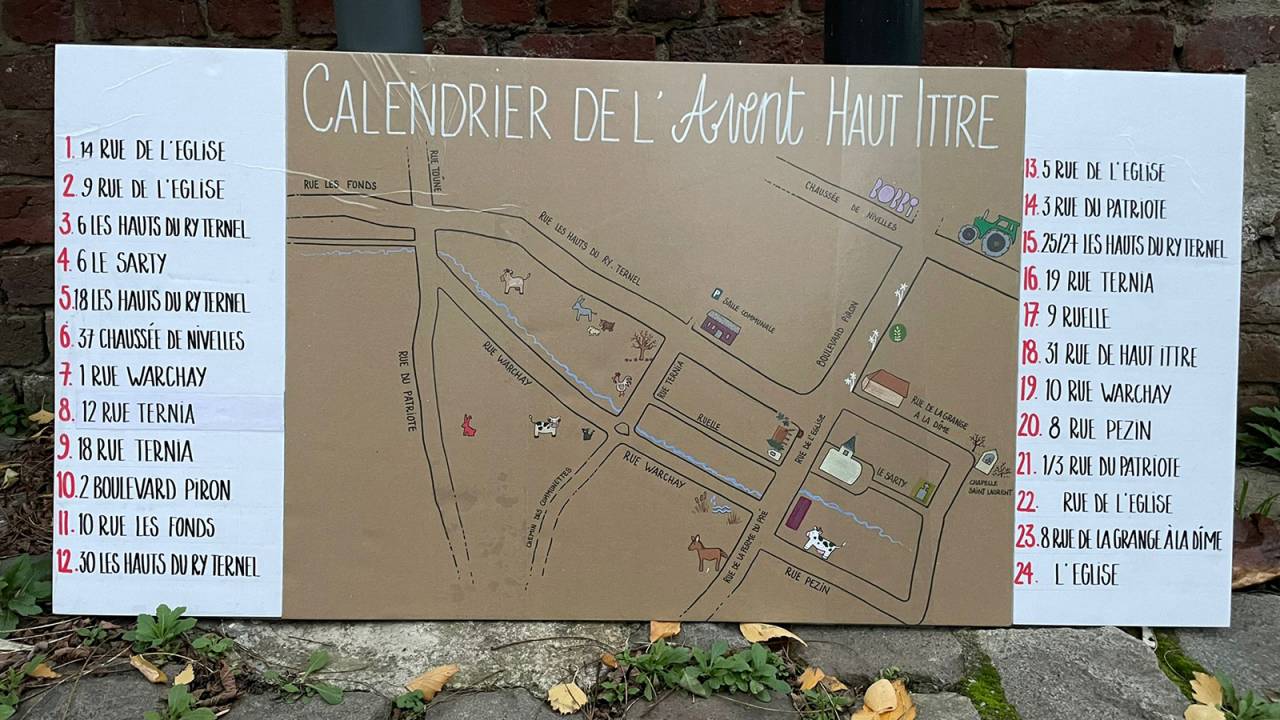 CALENDRIER DE L'Avent HAUT ITTRE
1. 14 RUE DE L'EGLISE
2. 9 RUE DE L'EGLISE
3. 6 LES HAUTS DU RY TERNEL
4. 6 LE SARTY
5. 18 LES HAUTS DU RY TERNEL
6. 37 CHAUSSÉE DE NIVELLES
7. 1 RUE WARCHAY
8. 12 RUE TERNIA
9. 18 RUE TERNIA
10. 2 BOULEVARD PIRON
11. 10 RUE LES FONDS
12. 30 LES HAUTS DU RY TERNEL
RUE LES FONDS
RUE TOUNE
RUE LES HAUTS DU RY. TERNEL
CHAUSSÉE DE NIVELLES
P SALLE COMMUNALE
BOULEVARD PIRON
RUE DU PATRIOTE
RUE WARCHAY
RUE TERNIA
RUELLE
RUE DE L'EGLISE
RUE DE LA GRANGE
A LA DÎME
LE SARTY
CHAPELLE
SAINT LAURENT
RUE WARCHAY
CHEMIN DES COMMUNETTES
RUE DE LA FERME DU PRÉ
RUE PEZIN
13. 5 RUE DE L'EGLISE
14. 3 RUE DU PATRIOTE
15. 25/27 LES HAUTS DU RY TERNEL
16. 19 RUE TERNIA
17. 9 RUELLE
18. 31 RUE DE HAUT ITTRE
19. 10 RUE WARCHAY
20. 8 RUE PEZIN
21. 1/3 RUE DU PATRIOTE
22. RUE DE L'EGLISE
23. 8 RUE DE LA GRANGE À LA DÎME
24. L'EGLISE